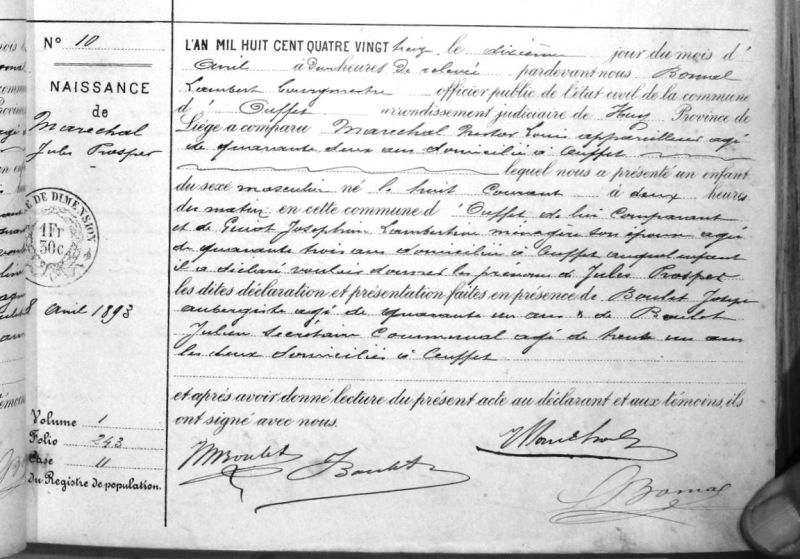 N° 10
NAISSANCE
de
Marechal
Jules Prosper
E DE DIMENSION
1 Fr
30c
8 Avril 1893
Volume 1
Folio 243
Case 11
du Registre de population.
L'AN MIL HUIT CENT QUATRE VINGT treize le dixième jour du mois d'
Avril à deux heures de relevée pardevant nous Bomal
Lambert bourgmestre officier public de l'état civil de la commune
d' Ouffet arrondissement judiciaire de Huy Province de
Liège a comparu Marechal Nestor Louis appariteur agé
de quarante deux ans domicilié à Ouffet
lequel nous a présenté un enfant
du sexe masculin né le huit courant à deux heures
du matin en cette commune d' Ouffet de lui comparant
et de Josephine Lambertine ménagère son épouse agée
de quarante trois ans domiciliée à Ouffet auquel enfant
il a déclaré vouloir donner les prenoms de Jules Prosper
les dites déclaration et présentation faites en présence de Boulet Joseph
aubergiste agé de quarante un ans & de Boulet
Julien Secrétaire Communal agé de trente un ans
les deux domiciliés à Ouffet
et après avoir donné lecture du présent acte au déclarant et aux témoins, ils
ont signé avec nous.
Marechal
Boulet
J Boulet
L Bomal